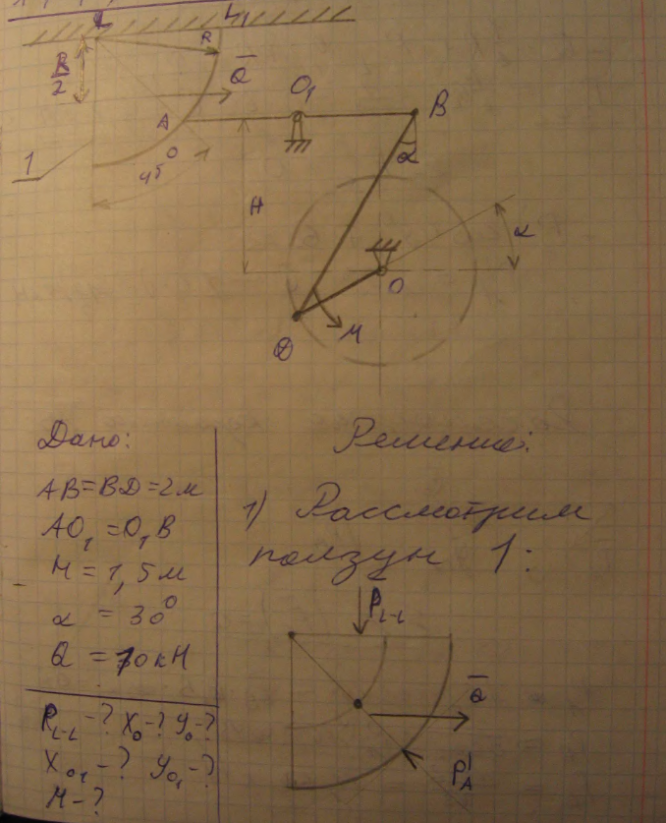 L
L
R
R/2
Q̄
O₁
B
A
α
1
45°
H
α
O
M
D
Дано:
AB=BD=2м
AO₁=O₁B
H=1,5м
α = 30°
Q = 10кН
R_L-L -? X₀-? Y₀-?
X₀₁-? Y₀₁-?
M-?
Решение:
1) Рассмотрим
ползун 1:
P_L-L
Q̄
P'_A